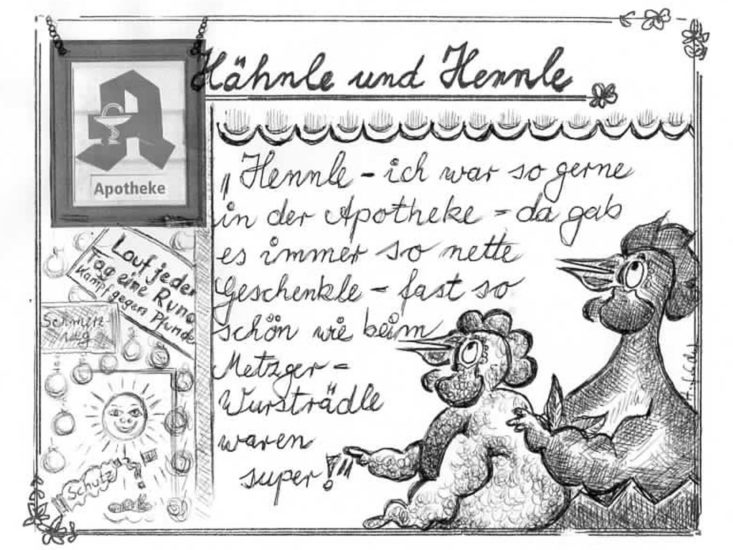 Hähnle und Hennle
Apotheke
„Hennle - ich war so gerne
in der Apotheke - da gab
es immer so nette
Geschenkle - fast so
schön wie beim
Metzger -
Wursträdle
waren
super!"
Lauf jeden
Tag eine Runde
Kampf gegen Pfunde
Schutz